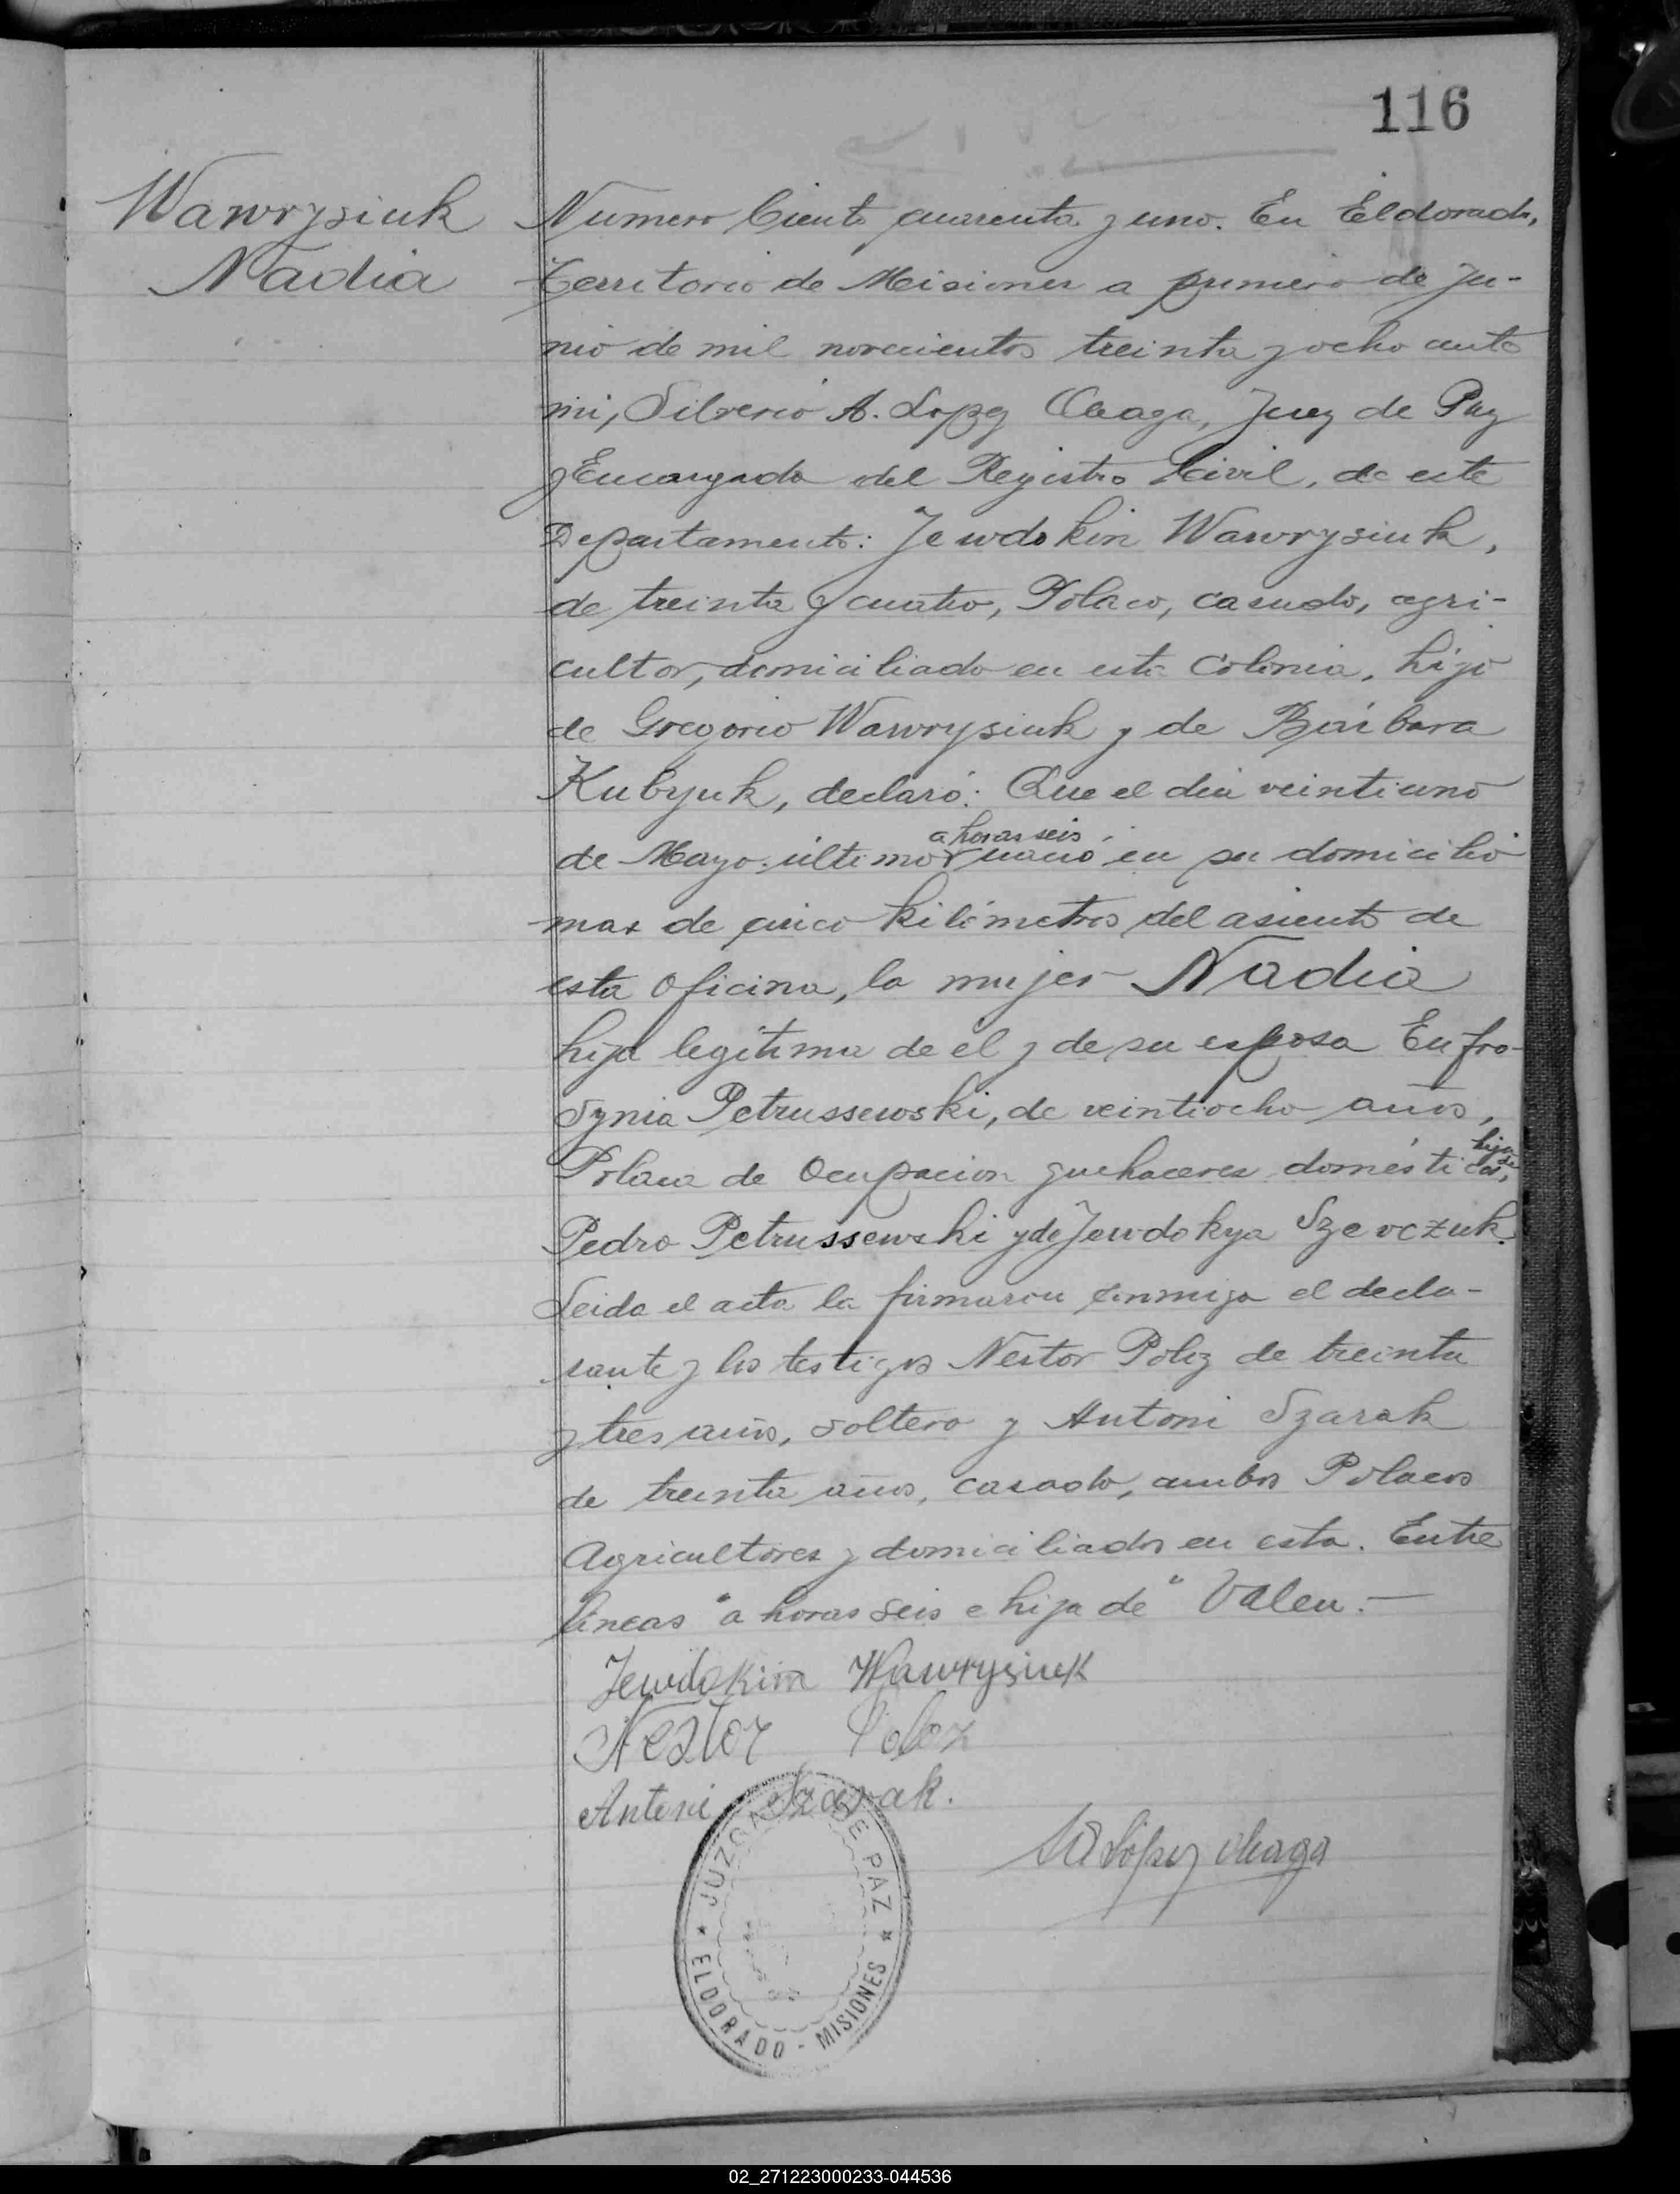 116
Wawrysiuk
Nadia
Numero Ciento cuarenta y uno. En Eldorado,
Territorio de Misiones a primero de Ju-
nio de mil novecientos treinta y ocho ante
mi, Silverio A. Lopez Cheaga, Juez de Paz
y Encargado del Registro Civil, de este
Departamento: Jewdokin Wawrysiuk,
de treinta y cuatro, Polaco, casado, agri-
cultor, domiciliado en esta Colonia, hijo
de Gregorio Wawrysiuk y de Bárbara
Kubyuk, declaró: Que el dia veintiuno
a horas seis
de Mayo último nació en su domicilio
mas de cinco kilómetros del asiento de
esta Oficina, la mujer Nadia
hija legítima de él y de su esposa Eufro-
synia Petrussewski, de veintiocho años,
Polaca de Ocupacion quehaceres domésticos, hija de
Pedro Petrussewski y de Jewdokya Szevczuk.
Leida el acta la firmaron conmigo el decla-
rante y los testigos Nestor Polez de treinta
y tres años, soltero y Antoni Szarak
de treinta años, casado, ambos Polacos
Agricultores y domiciliados en esta. Entre
líneas "a horas seis e hija de" Valen.—
Jewdokim Wawrysiuk
Nestor Polez
Antoni Szarak.
Lópe​z Cheaga
JUZGADO DE PAZ
* ELDORADO - MISIONES *
02_271223000233-044536